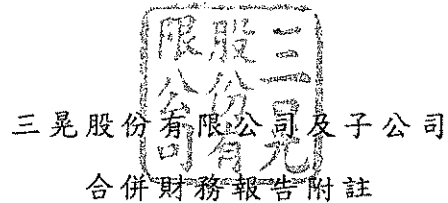 三晃股份有限公司
三晃股份有限公司及子公司
合併財務報告附註